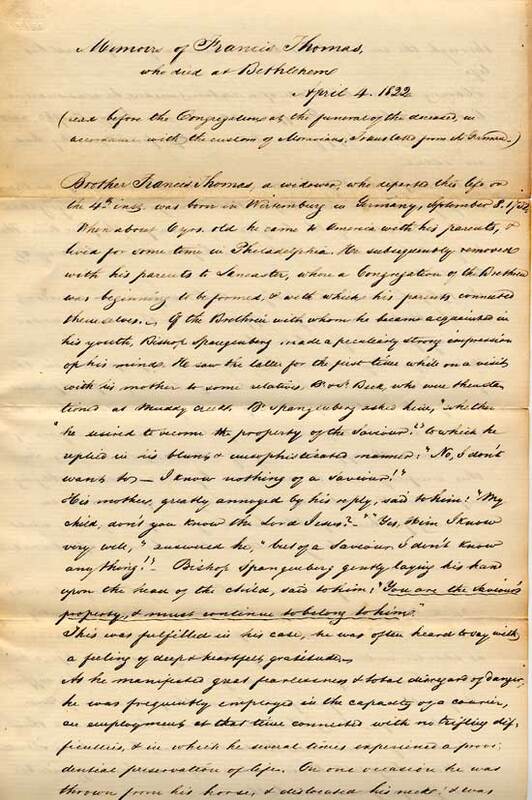 Memoirs of Francis Thomas,
who died at Bethlehem
April 4. 1822
(read before the Congregation at the funeral of the deceased, in
accordance with the custom of Moravians, translated from the German.)
Brother Francis Thomas, a widower, who departed this life on
the 4th inst. was born in Wirtemburg in Germany, September 8. 1732
When about 6 yrs. old he came to America with his parents, &
lived for some time in Philadelphia. He subsequently removed
with his parents to Lancaster, where a Congregation of the Brethren
was beginning to be formed, & with which his parents connected
themselves. Of the Brethren with whom he became acquainted in
his youth, Bishop Spangenberg made a peculiarly strong impression
on his mind. He saw the latter for the first time while on a visit
with his mother to some relatives, Br. & Sr. Beck, who were then sta-
tioned at Muddy Creek. Br. Spangenberg asked him, "whether
"he desired to become the property of the Saviour?" to which he
replied in his blunt & unsophisticated manner: "No, I don't
want to – I know nothing of a Saviour!"
His mother, greatly annoyed by his reply, said to him: "My
child, don't you know the Lord Jesus? –" "Yes, Him I know
very well," answered he, "but of a Saviour I don't know
anything!" Bishop Spangenberg gently laying his hand
upon the head of the child, said to him: "You are the Saviour's
property, & must continue to belong to him."
This was fulfilled in his case, he was often heard to say with
a feeling of deep & heartfelt gratitude.
As he manifested great fearlessness & total disregard of danger,
he was frequently employed in the capacity of a courier,
an employment at that time connected with no trifling dif-
ficulties, & in which he several times experienced a provi
dential preservation of life. On one occasion he was
thrown from his horse, & dislocated his neck & was